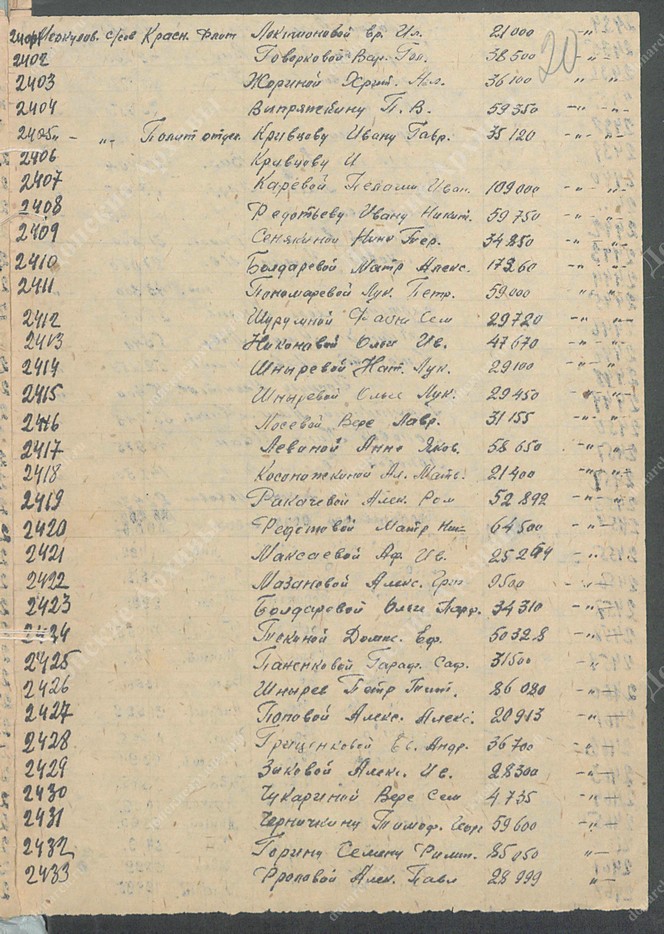 2401 Меркулов. с/сов Красн. Флот Локтионовой Ир. Ил. 21000 -"-
20
2402 Говорковой Вар. 38500 -"-
2403 Жориной Хрит. 36100 "-
2404 Випряжкину П. В. 59350 -"- "-
2405 "- -"- Полит отдел. Кривцову Ивану Гавр. 35120 -"- "-
2406 Кривцову И
2407 Каревой Пелагии Иван. 109000 -"- "-
2408 Федотьеву Ивану Никит. 59750 -"- "-
2409 Сенякиной Нине 34850 -"- "-
2410 Болдаревой Матр Алекс. 17360 -"- "-
2411 Пономаревой Лук. Петр. 59000 -"- "-
2412 Сем 29720 -"- "-
2413 Никоновой Ольги Ив. 47670 -"- "-
2414 Шныревой Нат. Лук. 29100 -"- "-
2415 Шныревой Ольге Лук. 29450 -"- "-
2416 Лосевой Вере Лавр. 31155 -"- "-
2417 Левиной Анне Яков. 58650 -"- "-
2418 Косоножкиной Ал. Матв. 21400 -"- "-
2419 Ракачевой Алек. Ром 52892 -"- "-
2420 Федотовой Матр Ник 64500 -"-
2421 Максаевой Аф. Ив. 25264 -"-
2422 Мазановой Алекс. Григ 9500 -"-
2423 Болдаревой Ольги 34310 -"-
2424 Текиной Домне. Еф. 50328 -"-
2425 Паненковой Гараф. Саф. 31500 -"-
2426 Шнырев Петр Тит. 86080 -"-
2427 Поповой Алекс. Алекс. 20913 -"-
2428 Грищенковой Ев. Андр. 36700 -"-
2429 Зиковой Алекс. Ив. 28300 -"-
2430 Чукариной Вере Сем 4735 -"-
2431 Черничкину Тимоф. 59600 -"-
2432 Горину Семену Филип. 85050 -"-
2433 Фроловой Алек. Павл 28999 "-